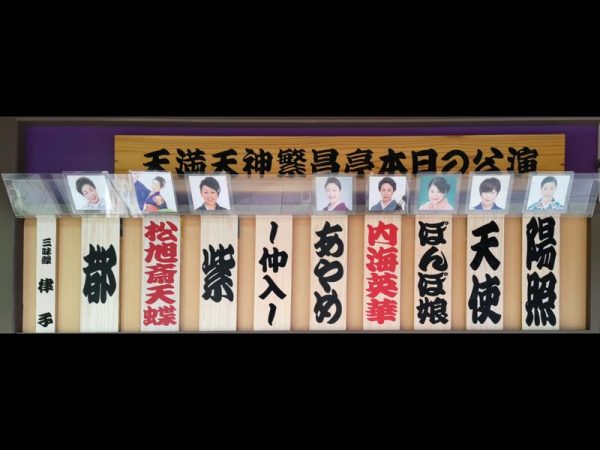 天満天神繁昌亭本日の公演
陽照
天使
ぽんぽ娘
内海英華
あやめ
~仲入~
紫
松旭斎天蝶
都
三味線 律子